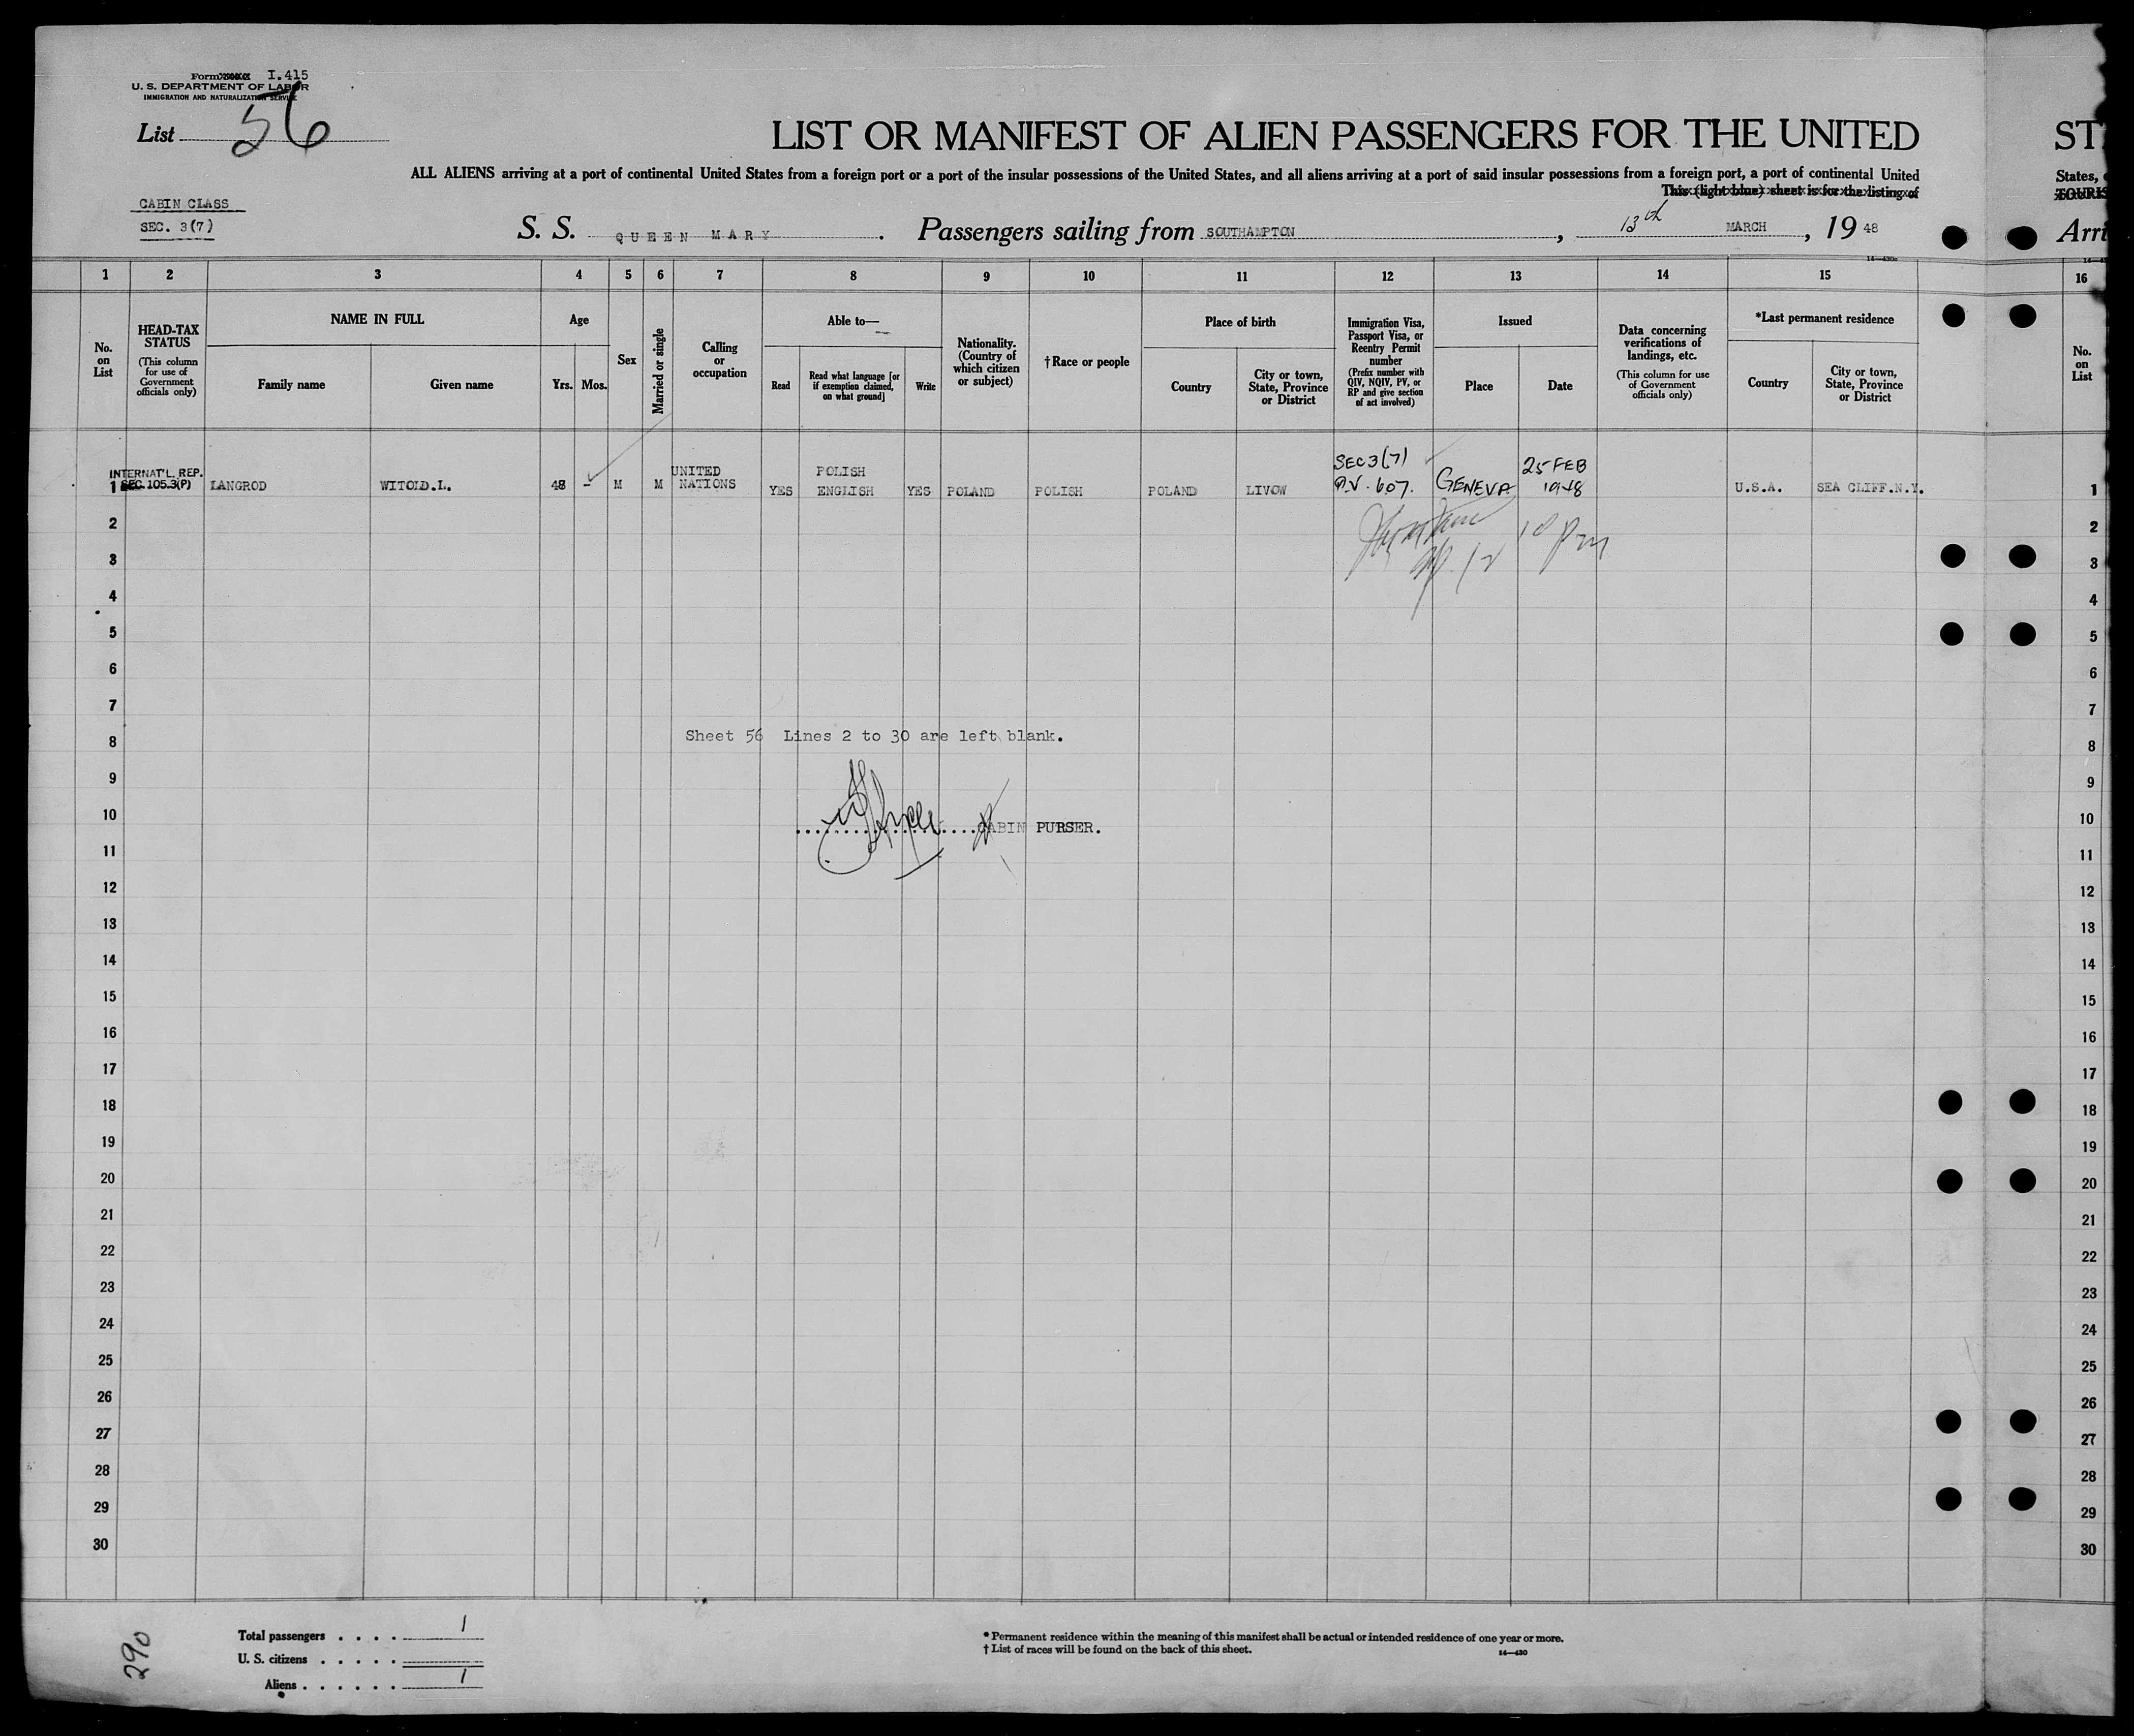 Form I.415
U. S. DEPARTMENT OF LABOR
IMMIGRATION AND NATURALIZATION SERVICE
List 56
LIST OR MANIFEST OF ALIEN PASSENGERS FOR THE UNITED
ST
ALL ALIENS arriving at a port of continental United States from a foreign port or a port of the insular possessions of the United States, and all aliens arriving at a port of said insular possessions from a foreign port, a port of continental United
States,
This (light blue) sheet is for the listing of
TOURIS
CABIN CLASS
SEC. 3(7)
S. S. QUEEN MARY. Passengers sailing from SOUTHAMPTON, 13th MARCH, 19 48
Arri
14—430c
1 2 3 4 5 6 7 8 9 10 11 12 13 14 15 16
No. on List
HEAD-TAX STATUS
(This column for use of Government officials only)
NAME IN FULL
Family name Given name
Age
Yrs. Mos.
Sex
Married or single
Calling or occupation
Able to—
Read
Read what language [or if exemption claimed, on what ground]
Write
Nationality. (Country of which citizen or subject)
†Race or people
Place of birth
Country
City or town, State, Province or District
Immigration Visa, Passport Visa, or Reentry Permit number
(Prefix number with QIV, NQIV, PV, or RP and give section of act involved)
Issued
Place Date
Data concerning verifications of landings, etc.
(This column for use of Government officials only)
*Last permanent residence
Country
City or town, State, Province or District
No. on List
INTERNAT'L. REP. UNITED POLISH SEC 3(7) 25 FEB
1 SEC. 105.3(P) LANGROD WITOLD.L. 48 - M M NATIONS YES ENGLISH YES POLAND POLISH POLAND LIVOW P.V. 607. GENEVA 1948 U.S.A. SEA CLIFF.N.Y. 1
2 2
3 3
4 4
5 5
6 6
7 7
Sheet 56 Lines 2 to 30 are left blank.
8 8
9 9
10 CABIN PURSER. 10
11 11
12 12
13 13
14 14
15 15
16 16
17 17
18 18
19 19
20 20
21 21
22 22
23 23
24 24
25 25
26 26
27 27
28 28
29 29
30 30
290
Total passengers . . . . 1
U. S. citizens . . . . .
Aliens . . . . . . 1
* Permanent residence within the meaning of this manifest shall be actual or intended residence of one year or more.
† List of races will be found on the back of this sheet.
14—430